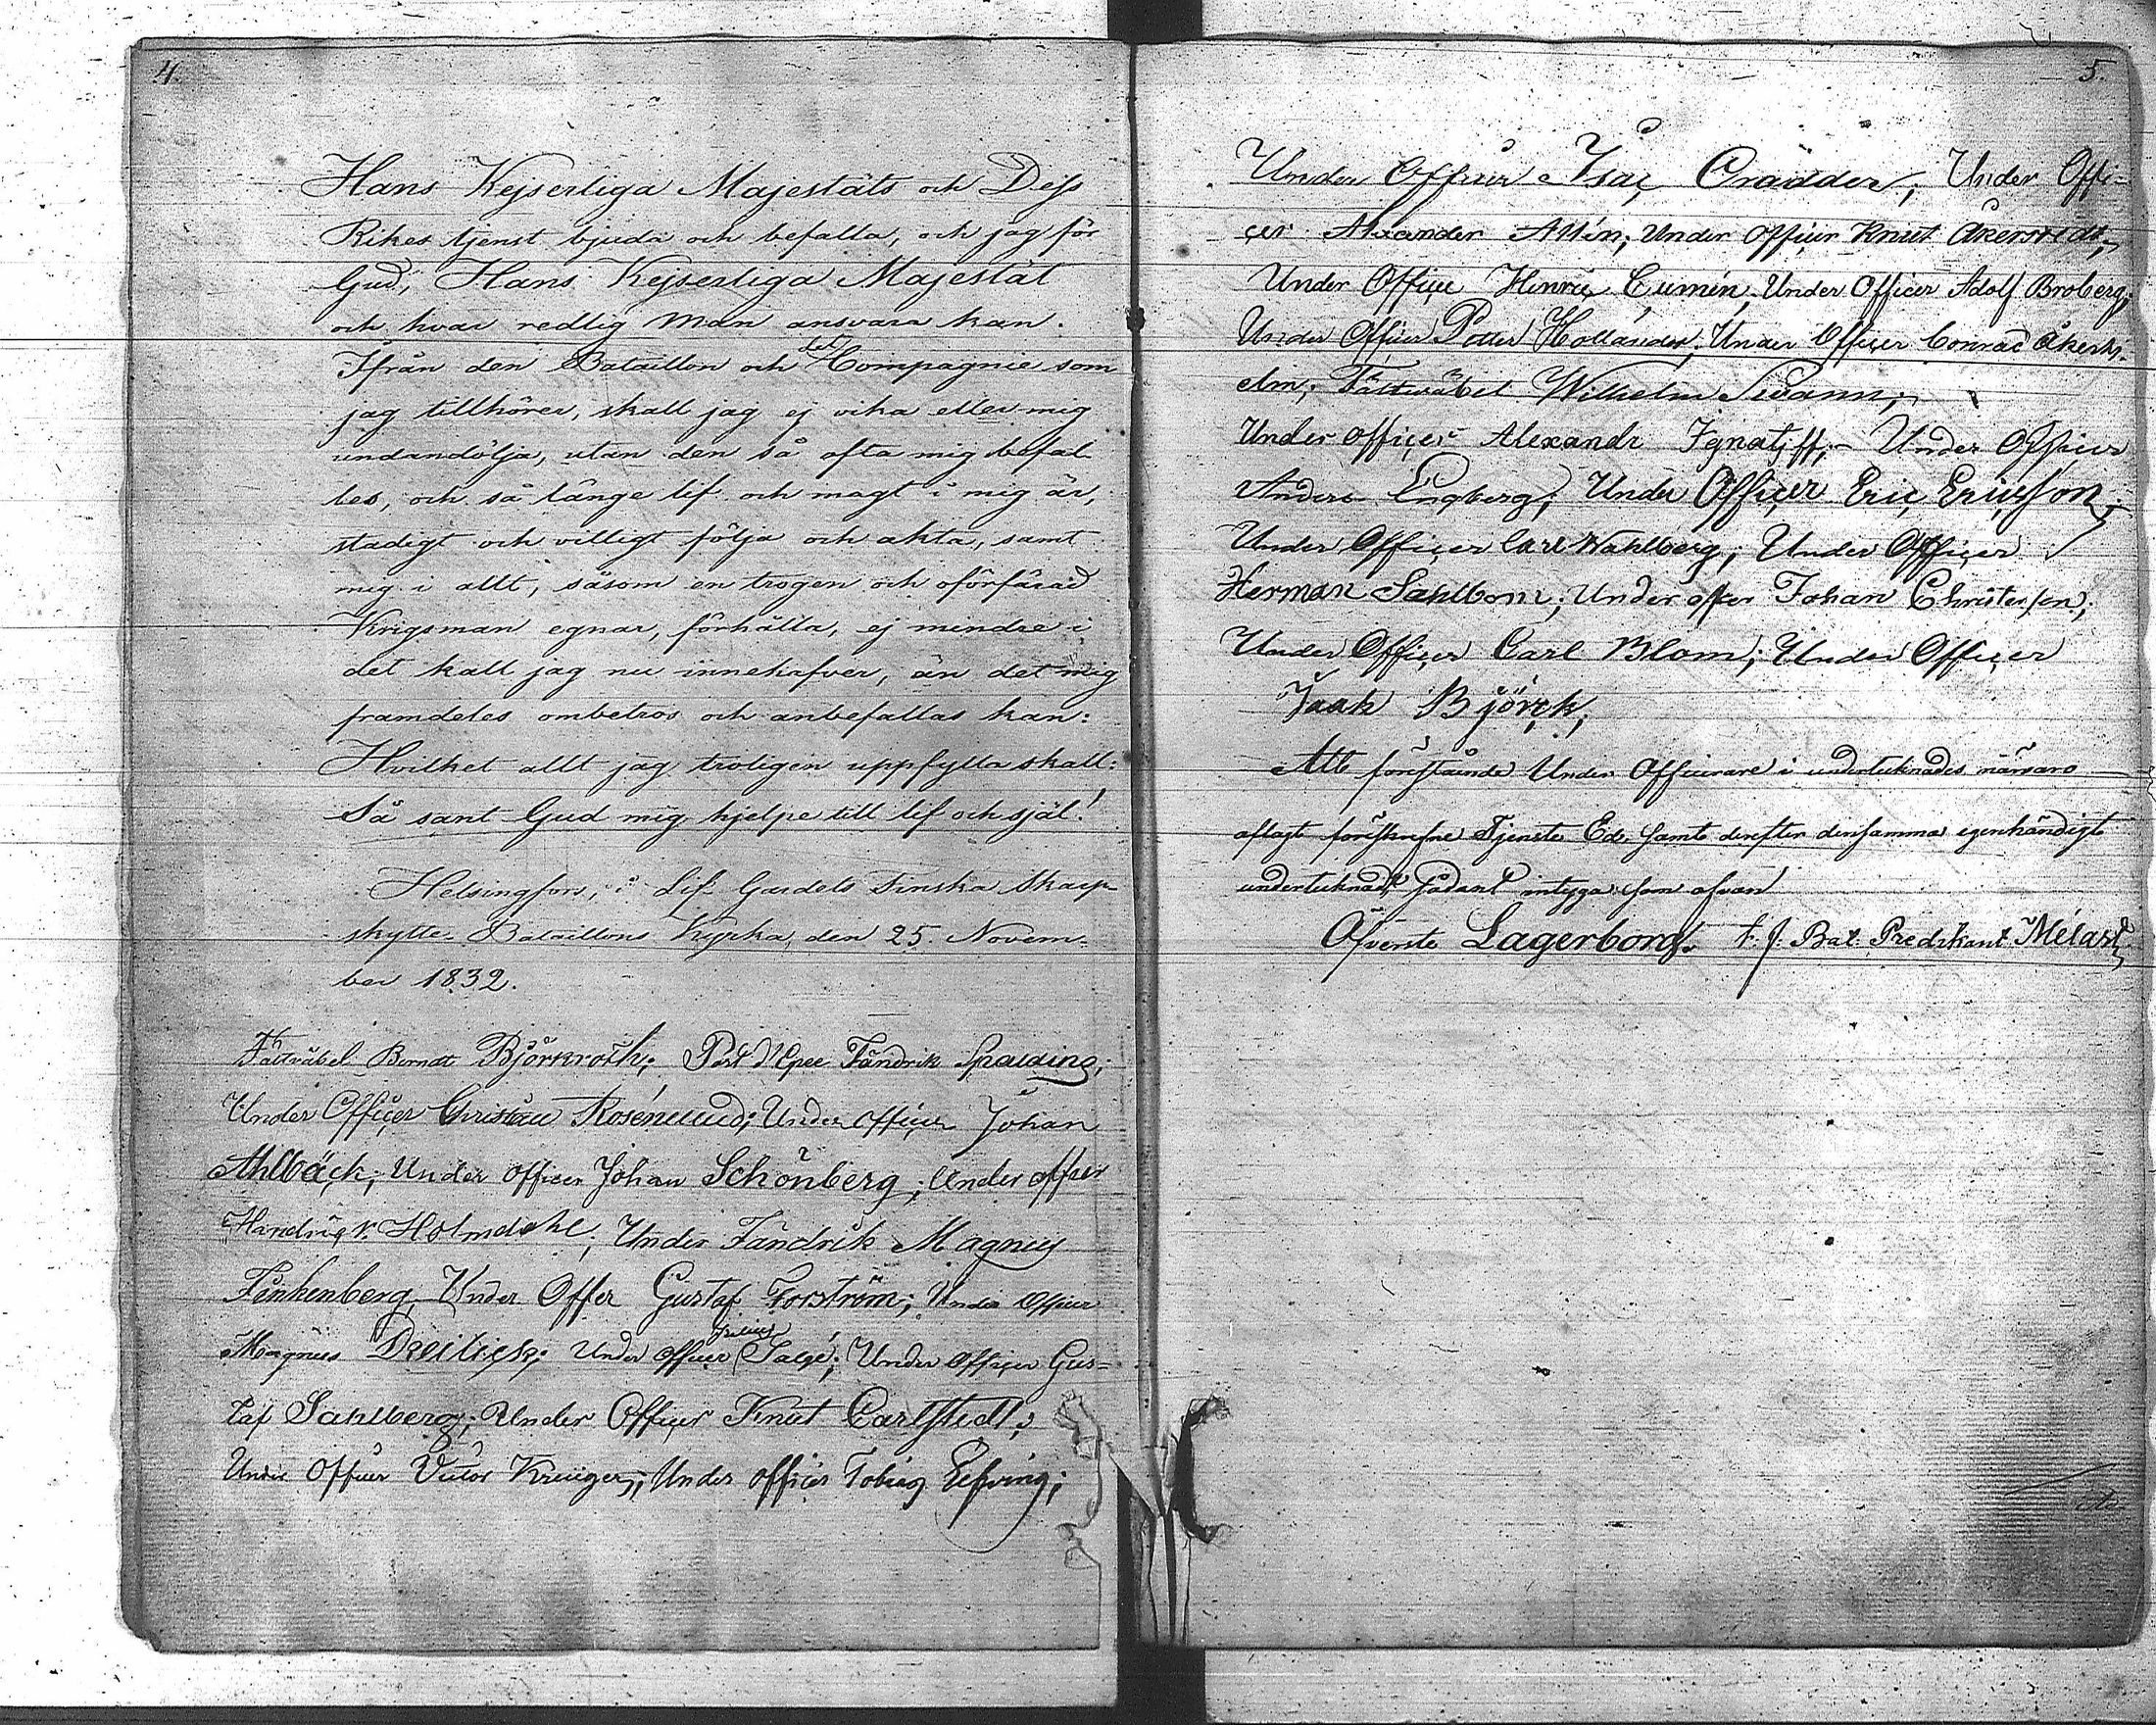 4.
Hans Kejserliga Majestäts och Dess
Rikes tjenst bjuda och befalla, och jag för
Gud, Hans Kejserliga Majestät
och hvar redlig Man ansvara kan.
Ifrån den Bataillon och det Compagnie som
jag tillhörer, skall jag ej vika eller mig
undandölja, utan den så ofta mig befal
les, och så länge lif och magt i mig är,
stadigt och villigt följa och akta, samt
mig i allt, såsom en trogen och oförfärad
Krigsman egnar, förhålla, ej mindre i
det kall jag nu innehafver, än det mig
framdeles ombetros och anbefallas kan:
Hvilket allt jag troligen uppfylla skall:
Så sant Gud mig hjelpe till lif och själ!
Helsingfors, i Lif Gardets Finska Skarp-
skytte-Bataillons Kyrka, den 25. Novem-
ber 1832.
Fältväbel Berndt Björkroth; Port d'Epee Fändrik Spalding;
Under Officer Christian Rosénlund; Under officer Johan
Ahlbäck; Under officer Johan Schönberg; Under officer
Hindric v. Holmdahl; Under Fändrik Magnus
Fenkenberg, Under Offer Gustaf Forström; Under Officer
Magnus Dreilick; Under officer Julius Sagé; Under officer Gus-
taf Sahlberg; Under Officer Knut Carlstedt;
Under Officer Victor Kreüger; Under officer Tobias Elfving;
5.
Under Officer Isac Crädder; Under Offi-
cer Alexander Allén; Under officer Knut Åkerstedt;
Under Officer Henric Cumén, Under Officer Adolf Broberg;
Under Officer Petter Hollánder; Under Officer Conrad Åkerh-
elm; Fältväbel Wilhelm Svann;
Under officer Alexandr Ignatjff; Under Officer
Anders Engberg; Under Officer Eric Ericsson;
Under Officer Carl Wahlberg; Under Officer
Herman Sahlbom; Under offer Johan Christersson;
Under Officer Carl Blom; Under Officer
Isaak Björck;
Att föreståénde Under Officerare i undertecknades närvaro
aflagt föreskrefne Tjenste Ed, samt derefter densamma egenhändigt
undertecknadt, sådant intyga som ofvan
Öfverste Lagerborg. t. f. Bat: Predikant Mélart